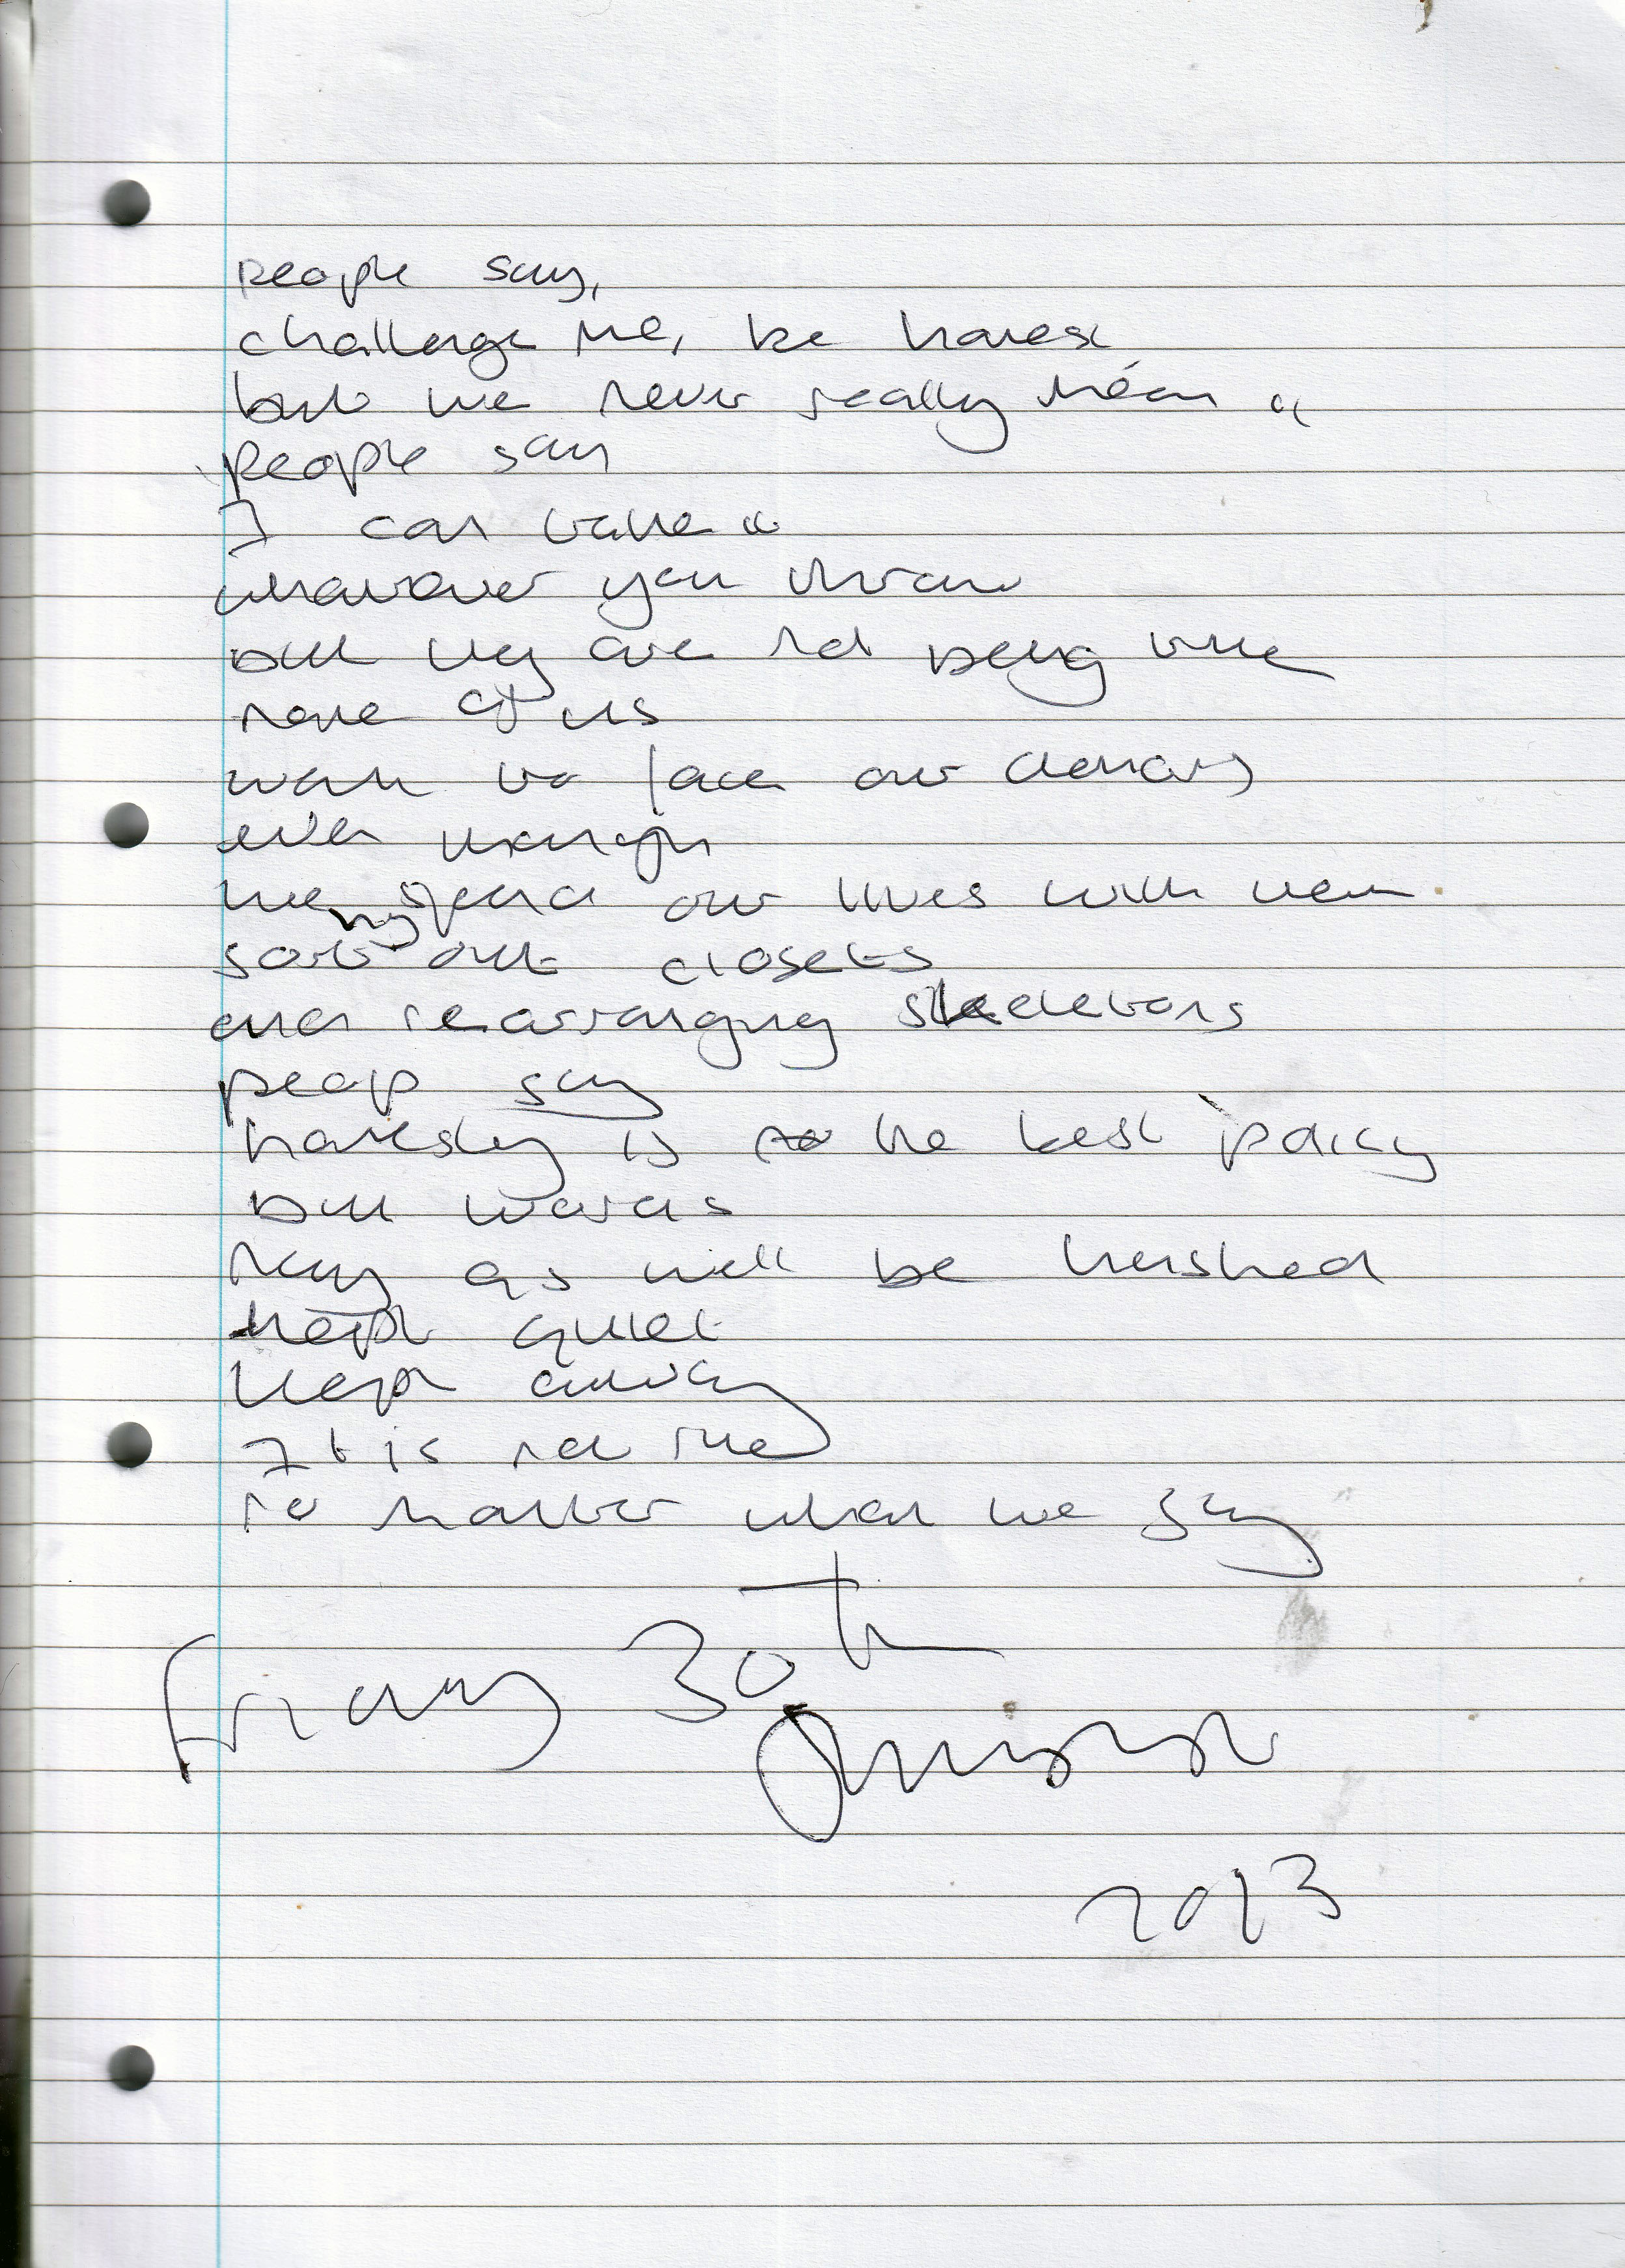 people say,
challenge me, be honest
but we never really mean it
people say
I can take it
whatever you throw
but they are not being true
none of us
want to face our demons
even though
we spend our lives with them
sorting out closets
and rearranging skeletons
peop say
honesty is the best policy
but words
may as well be hushed
kept quiet
kept away
It is not me
no matter what we say
Friday 30th
August
2013